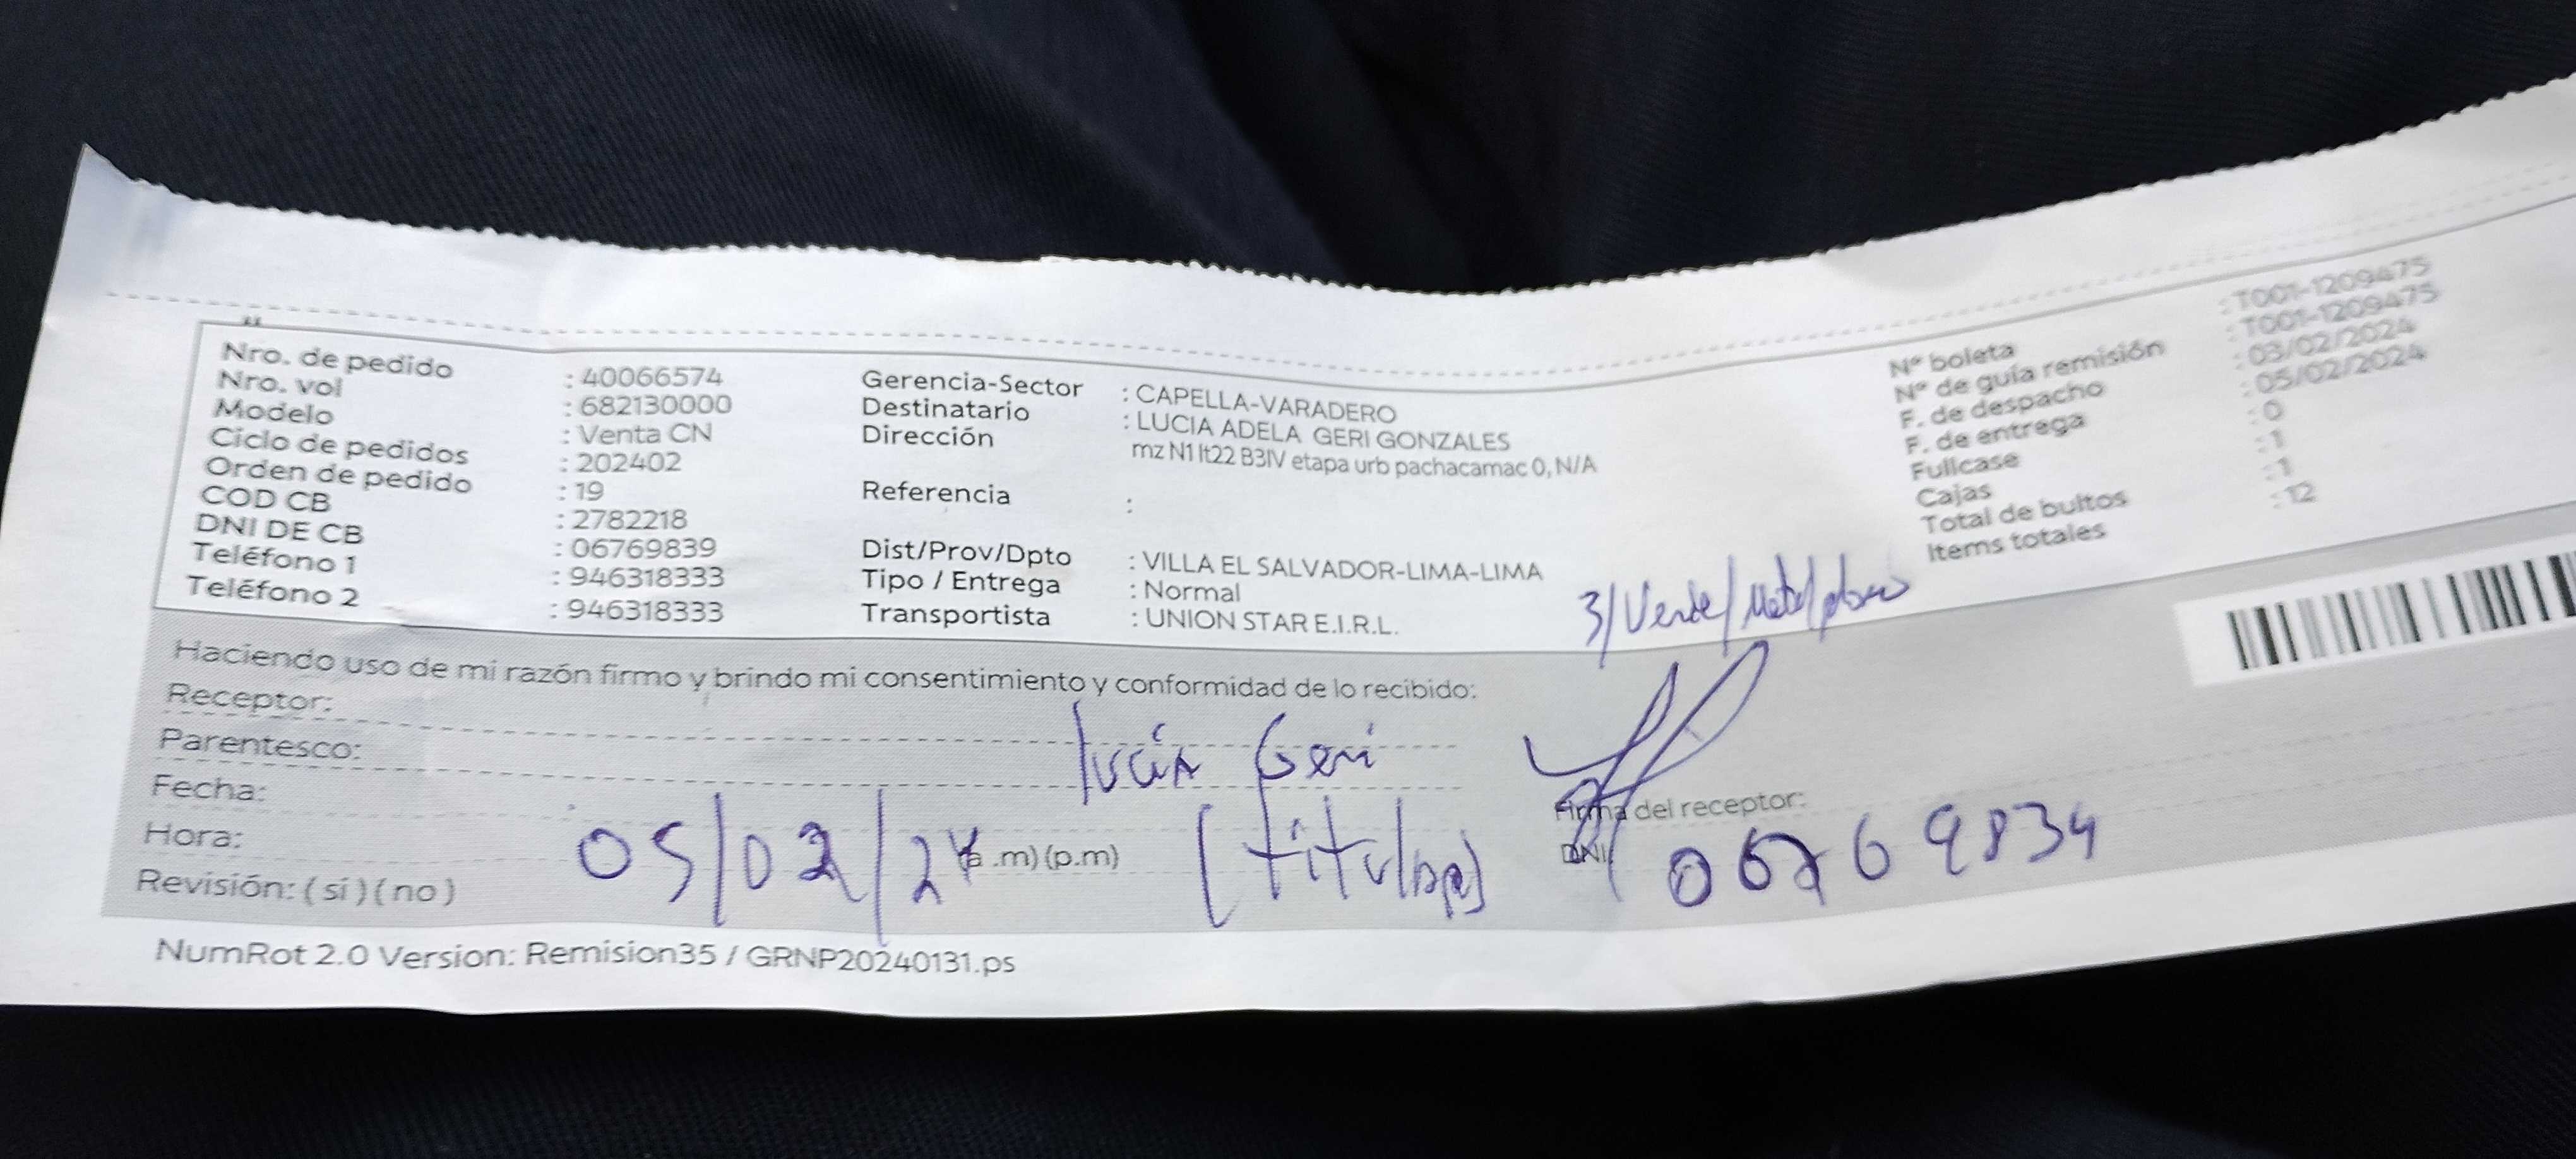 Nro. de pedido : 40066574
Nro. vol : 682130000
Modelo : Venta CN
Ciclo de pedidos : 202402
Orden de pedido : 19
COD CB : 2782218
DNI DE CB : 06769839
Teléfono 1 : 946318333
Teléfono 2 : 946318333
Gerencia-Sector : CAPELLA-VARADERO
Destinatario : LUCIA ADELA GERI GONZALES
Dirección mz N1 lt22 B3IV etapa urb pachacamac 0, N/A
Referencia :
Dist/Prov/Dpto : VILLA EL SALVADOR-LIMA-LIMA
Tipo / Entrega : Normal
Transportista : UNION STAR E.I.R.L.
N° boleta : T001-1209475
N° de guía remisión : T001-1209475
F. de despacho : 03/02/2024
F. de entrega : 05/02/2024
Fullcase : 0
Cajas : 1
Total de bultos : 1
Items totales : 12
3/Verde/Metal/
Haciendo uso de mi razón firmo y brindo mi consentimiento y conformidad de lo recibido:
Receptor:
Lucia Geri
Parentesco:
Fecha:
Firma del receptor:
Hora: 05/02/24 (a .m) (p.m) (titular)
DNI: 06769834
Revisión: ( sí ) ( no )
NumRot 2.0 Version: Remision35 / GRNP20240131.ps